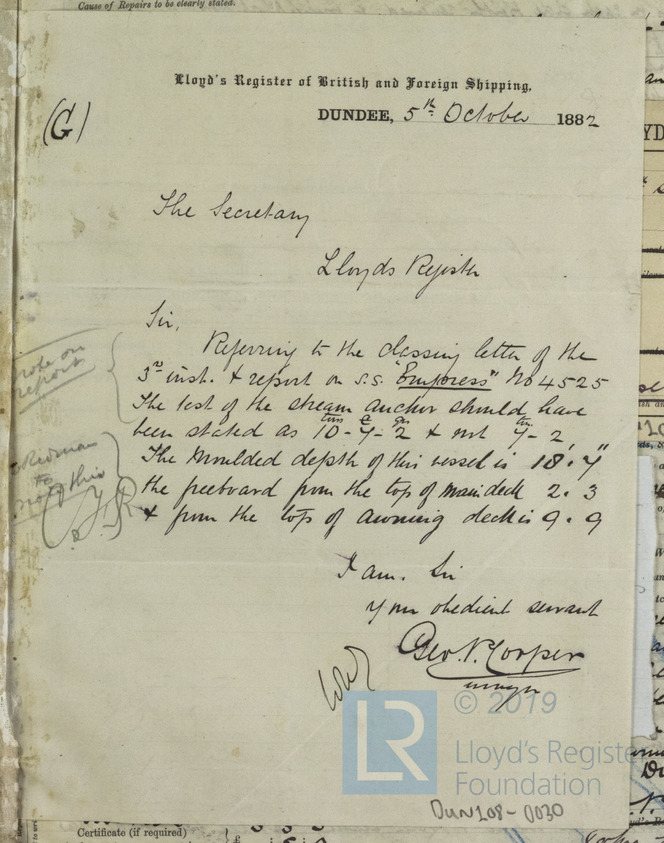 Cause of Repairs to be clearly stated.
Lloyd's Register of British and Foreign Shipping,
(G)
DUNDEE, 5th October 1882
The Secretary
Lloyds Register
Sir,
Referring to the classing letter of the
3rd inst. & report on S.S. "Empress" No 4525
The test of the stream anchor should have
been stated as 10-7-2 & not 7-2,
The Moulded depth of this vessel is 18.7"
the freeboard from the top of main deck 2.3
& from the top of awning deck is 9.9
note on
report
to
this
I am. Sir
Your obedient servant
Geo. N. Cooper
© 2019
LR
Lloyd's Registe
Foundation
DUN108-0030
Certificate (if required)